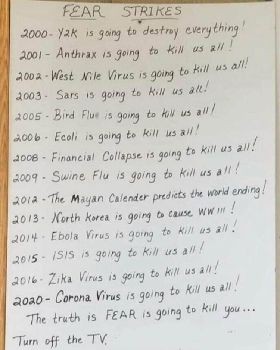 FEAR STRIKES
2000- Y2K is going to destroy everything!
2001- Anthrax is going to kill us all!
2002- West Nile Virus is going to kill us all!
2003- Sars is going to kill us all!
2005- Bird Flue is going to kill us all!
2006- Ecoli is going to kill us all!
2008- Financial Collapse is going to kill us all!
2009- Swine Flu is going to kill us all!
2012- The Mayan Calender predicts the world ending!
2013- North Korea is going to cause WW III!
2014- Ebola Virus is going to kill us all!
2015- ISIS is going to kill us all!
2016- Zika Virus is going to kill us all!
2020- Corona Virus is going to kill us all!
The truth is FEAR is going to kill you...
Turn off the TV.